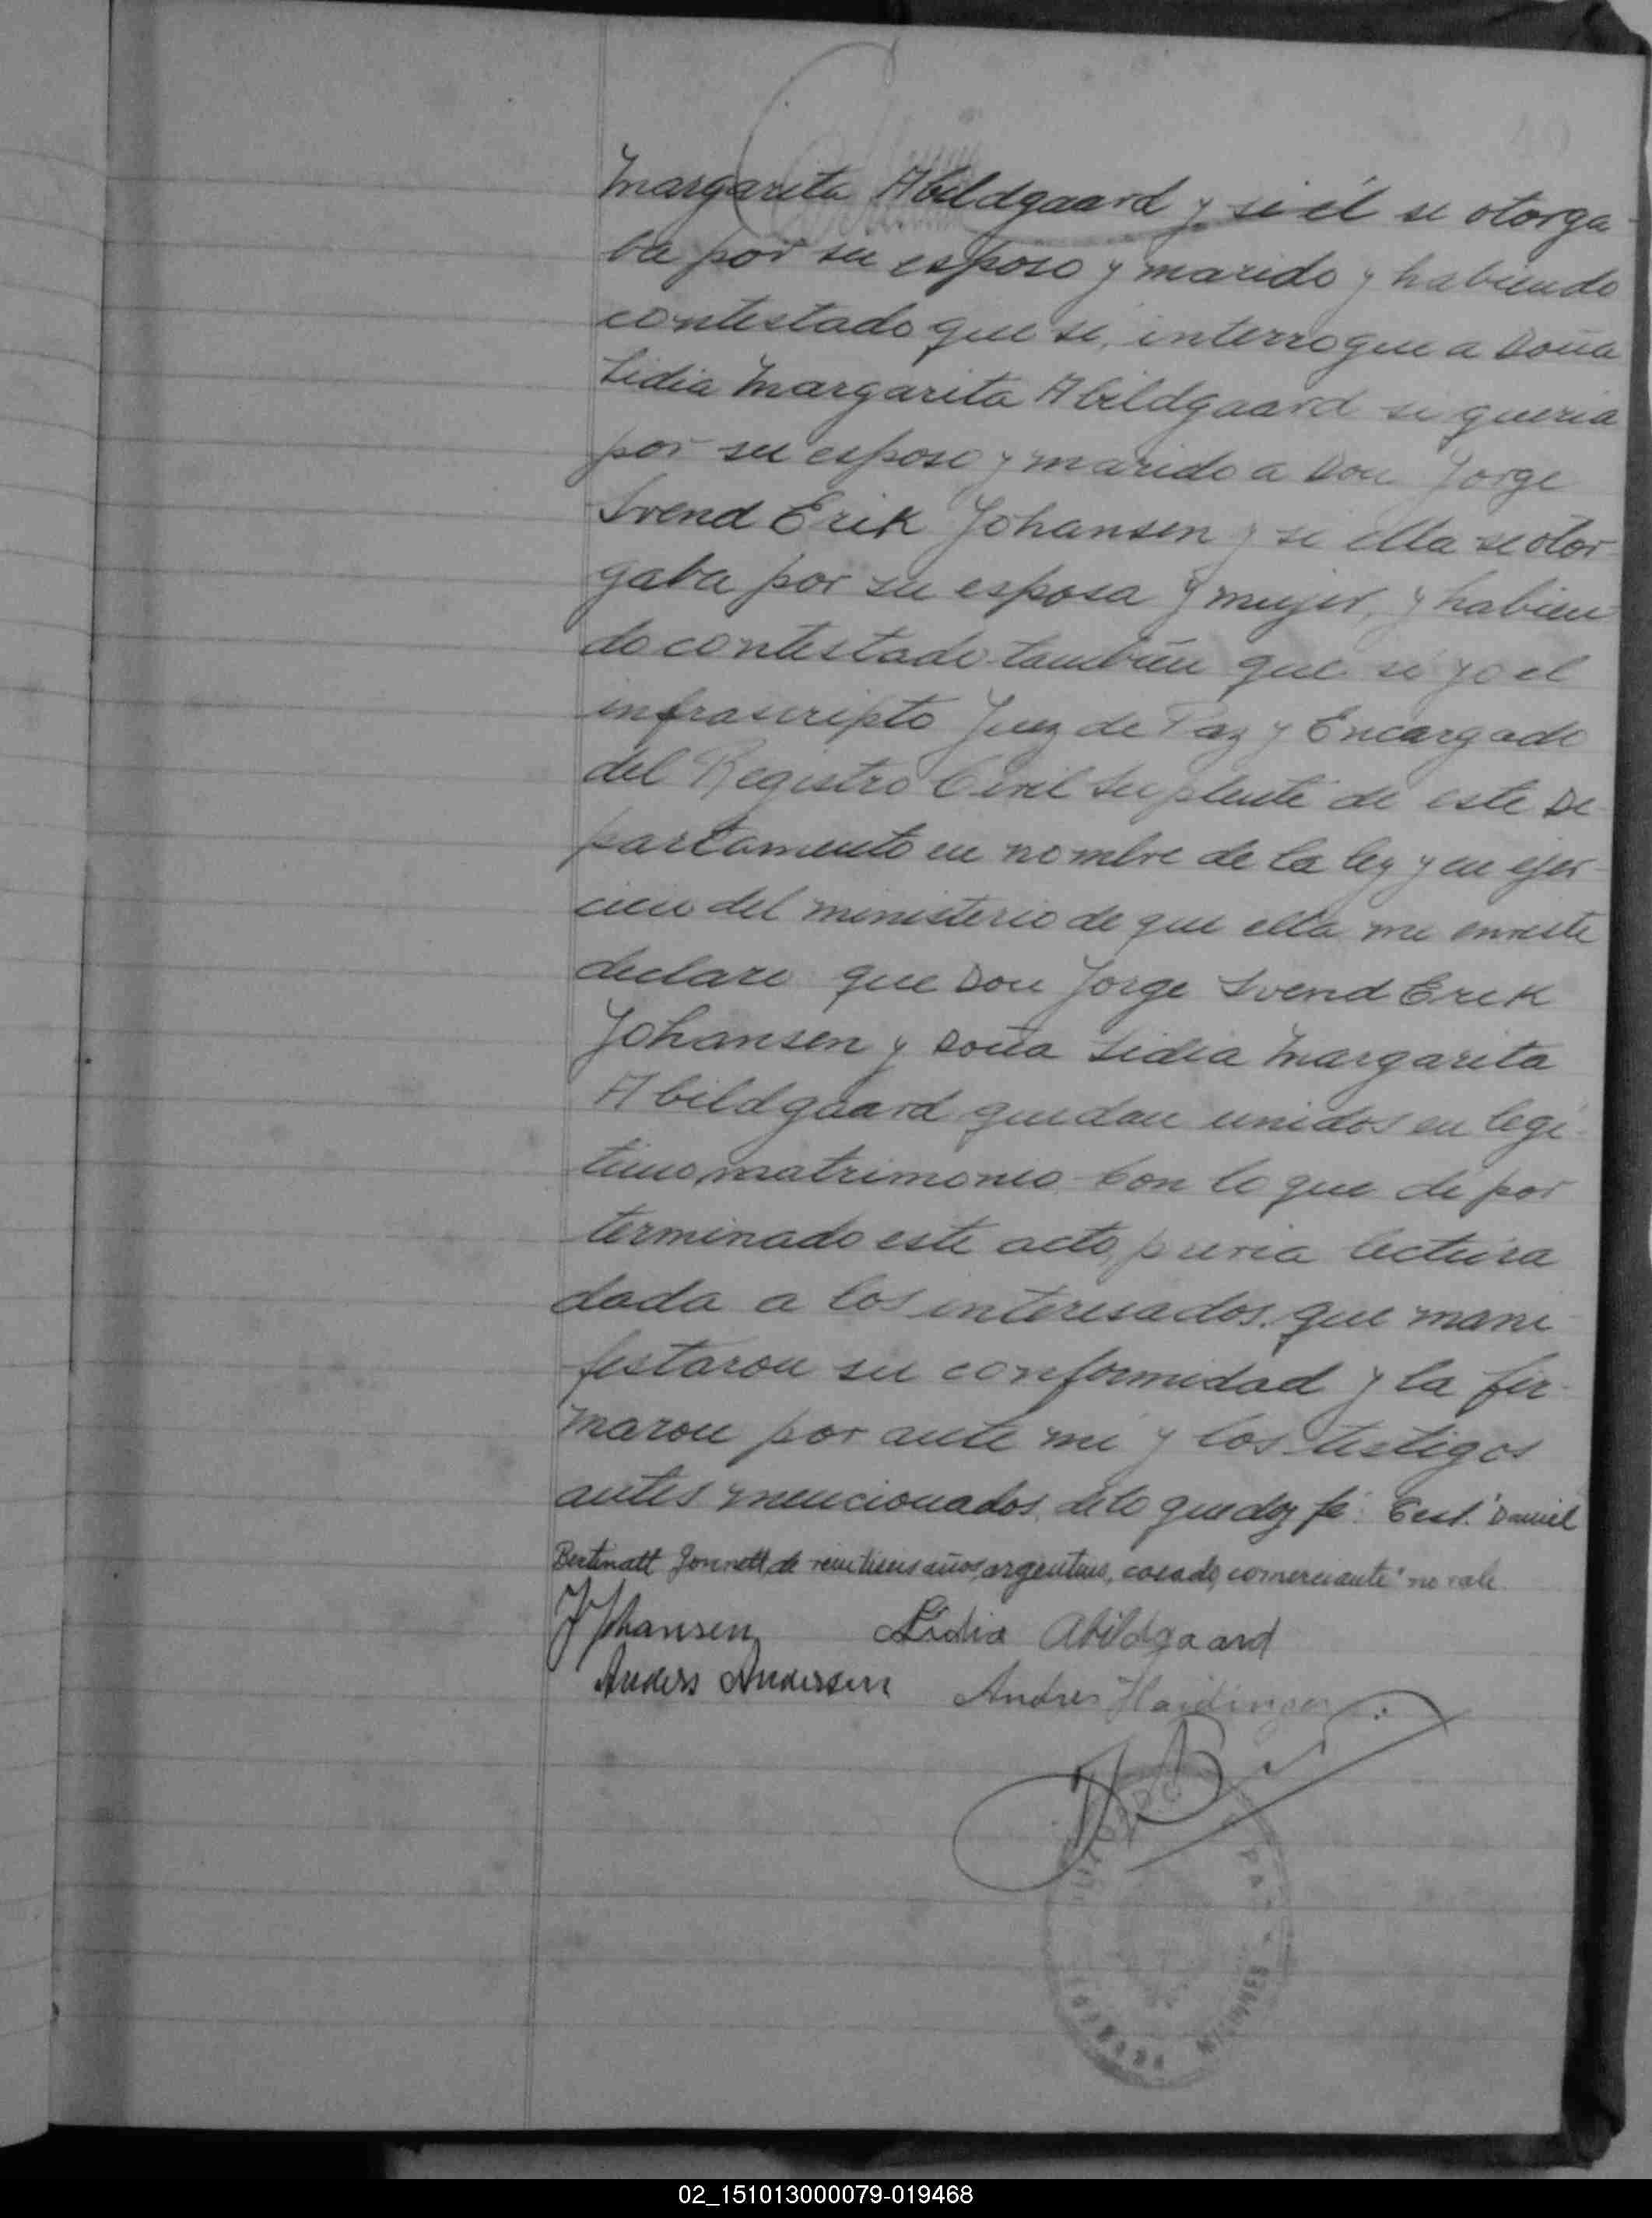 Margarita Abildgaard y si él se otorga-
ba por su esposo y marido y habiendo
contestado que si, interrogue a Doña
Lidia Margarita Abildgaard si queria
por su esposo y marido a Don Jorge
Svend Erik Johansen y si ella se otor-
gaba por su esposa y mujer, y habien-
do contestado tambien que si yo el
infrascripto Juez de Paz y Encargado
del Registro Civil Suplente de este De-
partamento en nombre de la ley y en ejer-
cicio del ministerio de que ella me enviste
declaro que Don Jorge Svend Erik
Johansen y Doña Lidia Margarita
Abildgaard quedan unidos en legi-
timo matrimonio con lo que di por
terminado este acto, previa lectura
dada a los interesados, que mani-
festaron su conformidad y la fir-
maron por ante mi y los testigos
antes mencionados, de lo que doy fé. Test. "Daniel
de años, argentino, casado, comerciante" no vale.
J Johansen Lidia Abildgaard
Anders Andersen Andres
PAZ
NECOCHEA